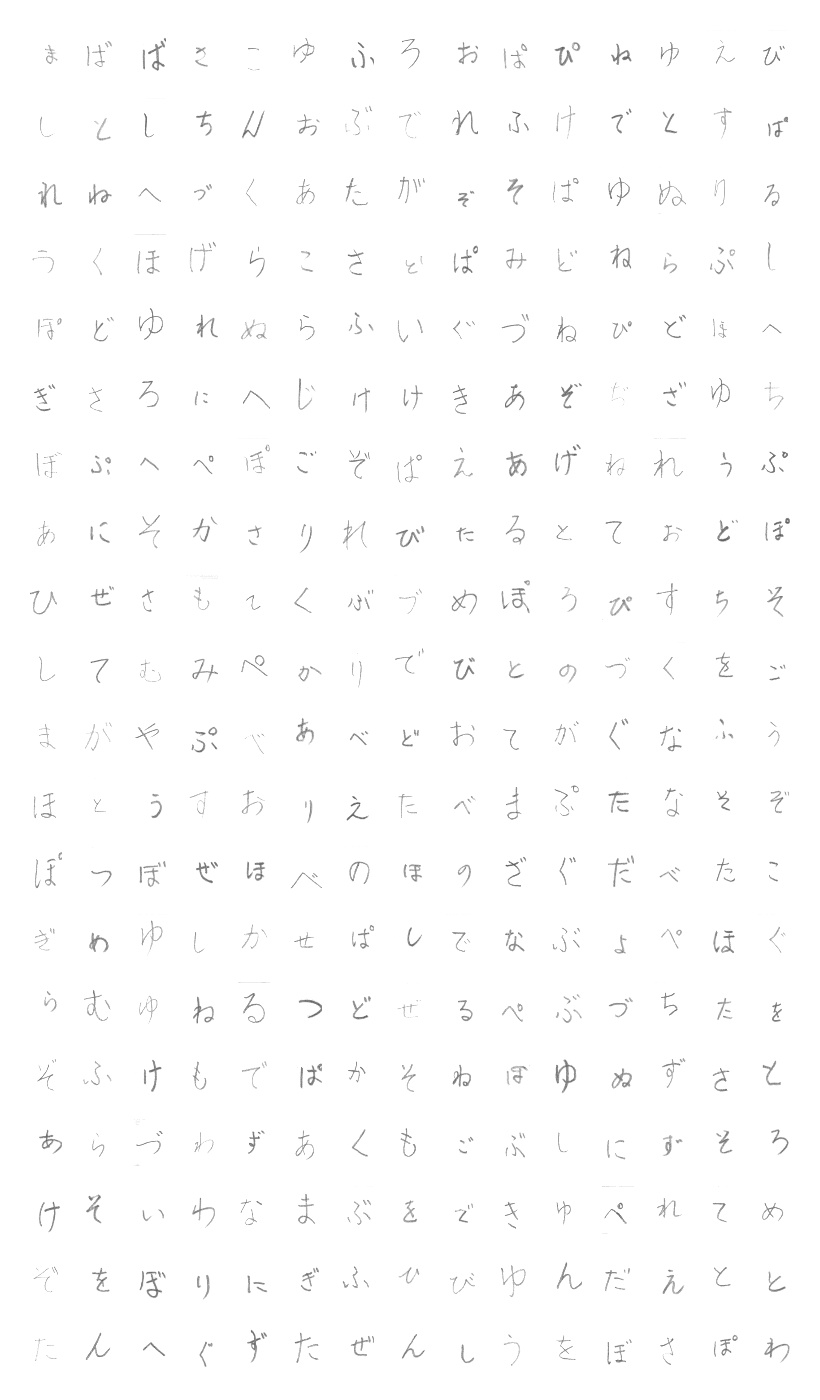 まばばさこゆふろおぱぴねゆえび
しとしちんおぶでれふけでとすぱ
れねへづくあたがぞそぱゆぬりる
うくほげらこさどぱみどねらぷし
ぽどゆれぬらふいぐづねぴどほへ
ぎさろにへじけけきあぞぢざゆち
ぼぷへぺぽごぞぱえあげねれうぷ
あにそかさりれびたるとておどぽ
ひぜさもてくぶづめぽろぴすちそ
してむみぺかりでびとのづくをご
まがやぷべあべどおてがぐなふう
ほとうすおりえたべまぷたなそぞ
ぽつぼぜほべのほのざぐだべたこ
ぎめゆしかせぱしでなぶょぺほぐ
らむゆねるつどぜるぺぶづちたを
ぞふけもでぱかそねほゆぬずさと
あらづわずあくもごぶしにずそろ
けそいわなまぶをできゆぺれてめ
ぞをぼりにぎふひびゆんだえとと
たんへぐずたぜんしうをぼさぽわ